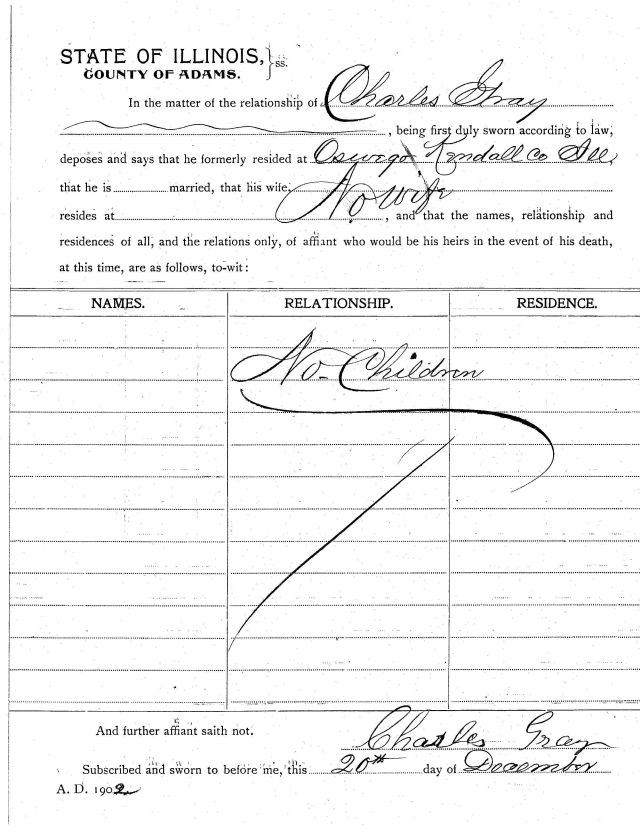 STATE OF ILLINOIS, } ss.
COUNTY OF ADAMS.
In the matter of the relationship of Charles Gray
, being first duly sworn according to law,
deposes and says that he formerly resided at Oswego Kendall Co Ill,
that he is married, that his wife, No wife
resides at , and that the names, relationship and
residences of all, and the relations only, of affiant who would be his heirs in the event of his death,
at this time, are as follows, to-wit:
NAMES. RELATIONSHIP. RESIDENCE.
No- Children
And further affiant saith not. Charles Gray
Subscribed and sworn to before me, this 20th day of December
A. D. 1902